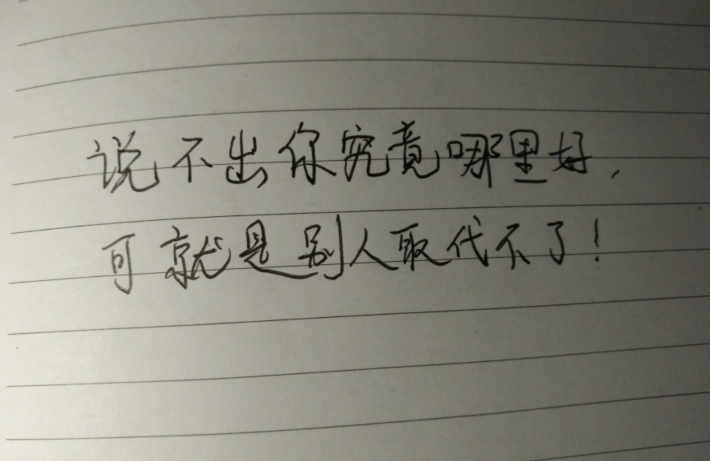 说不出你究竟哪里好，
可就是别人取代不了！